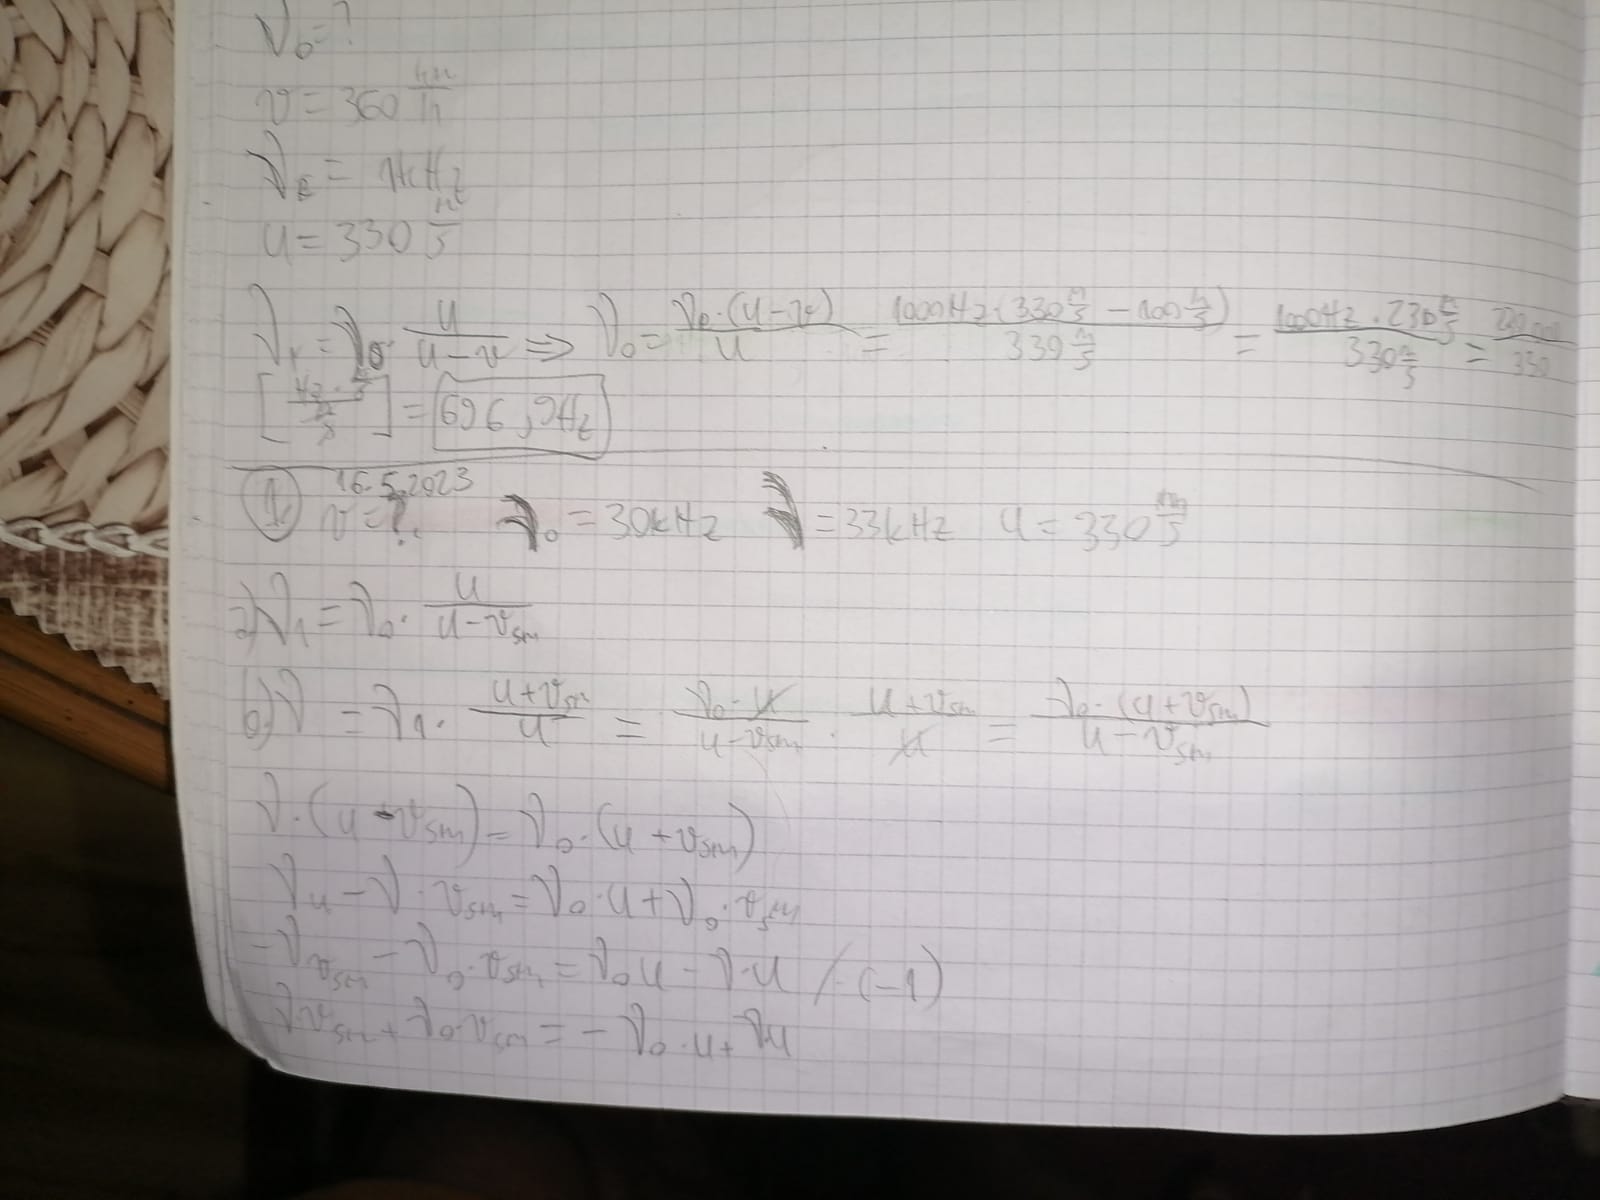 ν₀ = ?
v = 360 km/h
νₚ = 1kHz
u = 330 m/s
ν₁ = ν₀ · u/(u-v) ⇒ ν₀ = ν₀·(u-v)/u = 1000Hz·(330 m/s - 100 m/s)/330 m/s = 1000Hz·230 m/s / 330 m/s = 230 000/330
[Hz·m/s / m/s] = 696,9Hz
① 16.5.2023
v = ? ν₀ = 30kHz ν = 33kHz u = 330 m/s
a) ν₁ = ν₀ · u/(u-všm)
b) ν = ν₁ · (u+všm)/u = ν₀·u/(u-všm) · (u+všm)/u = ν₀·(u+všm)/(u-všm)
ν·(u-všm) = ν₀·(u+všm)
νu - ν·všm = ν₀·u + ν₀·všm
-νvšm - ν₀·všm = ν₀u - ν·u /·(-1)
νvšm + ν₀·všm = -ν₀·u + νu